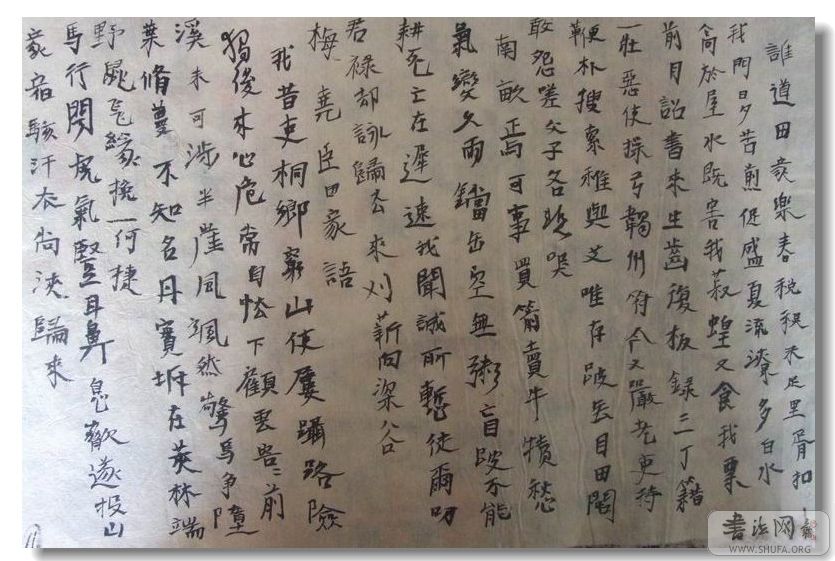 誰道田家樂春税秋未足里胥扣
我門日夕苦煎促盛夏流潦多白水
高於屋水既害我菽蝗又食我粟
前月詔書來生齒復板録三丁籍
一壯惡使操弓韣州符今又嚴老吏持
鞭朴搜索稚與艾唯存跛無目田閭
敢怨嗟父子各悲哭
南畝焉可事買箭賣牛犢愁
氣變久雨鐺缶空無粥盲跛不能
耕死亡在遲速我聞誠所慙徒爾叨
君禄却詠歸去來刈薪向深谷
梅堯臣田家語
我昔吏桐鄉窮山使屢躡路險
獨後來心危常自怯下顧雲容〻前
溪未可涉半崖風颯然驚鳥爭墮
葉脩蔓不知名丹實坼在莢林端
野鼠飛緣挽一何捷
馬行聞虎氣豎耳鼻息歙遂投山
家宿駭汗衣尚浹歸來
書法网
WWW.SHUFA.ORG